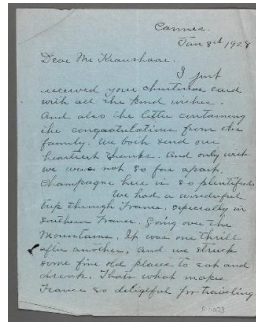 Cannes.
Jan 8th 1928
Dear Mr Kraushaar.
I just
received your christmas card
with all the kind wishes.
And also the letter containing
the congratulations from the
family. We both send our
heartiest thanks. And only wish
we was not so far apart.
Champagne here is so plentiful
We had a wonderful
trip through France, especially in
Southern France. Going over the
Mountains. It was one thrill
after another, and we struck
some fine old places to eat and
drink. Thats what makes
France so delightful for traveling